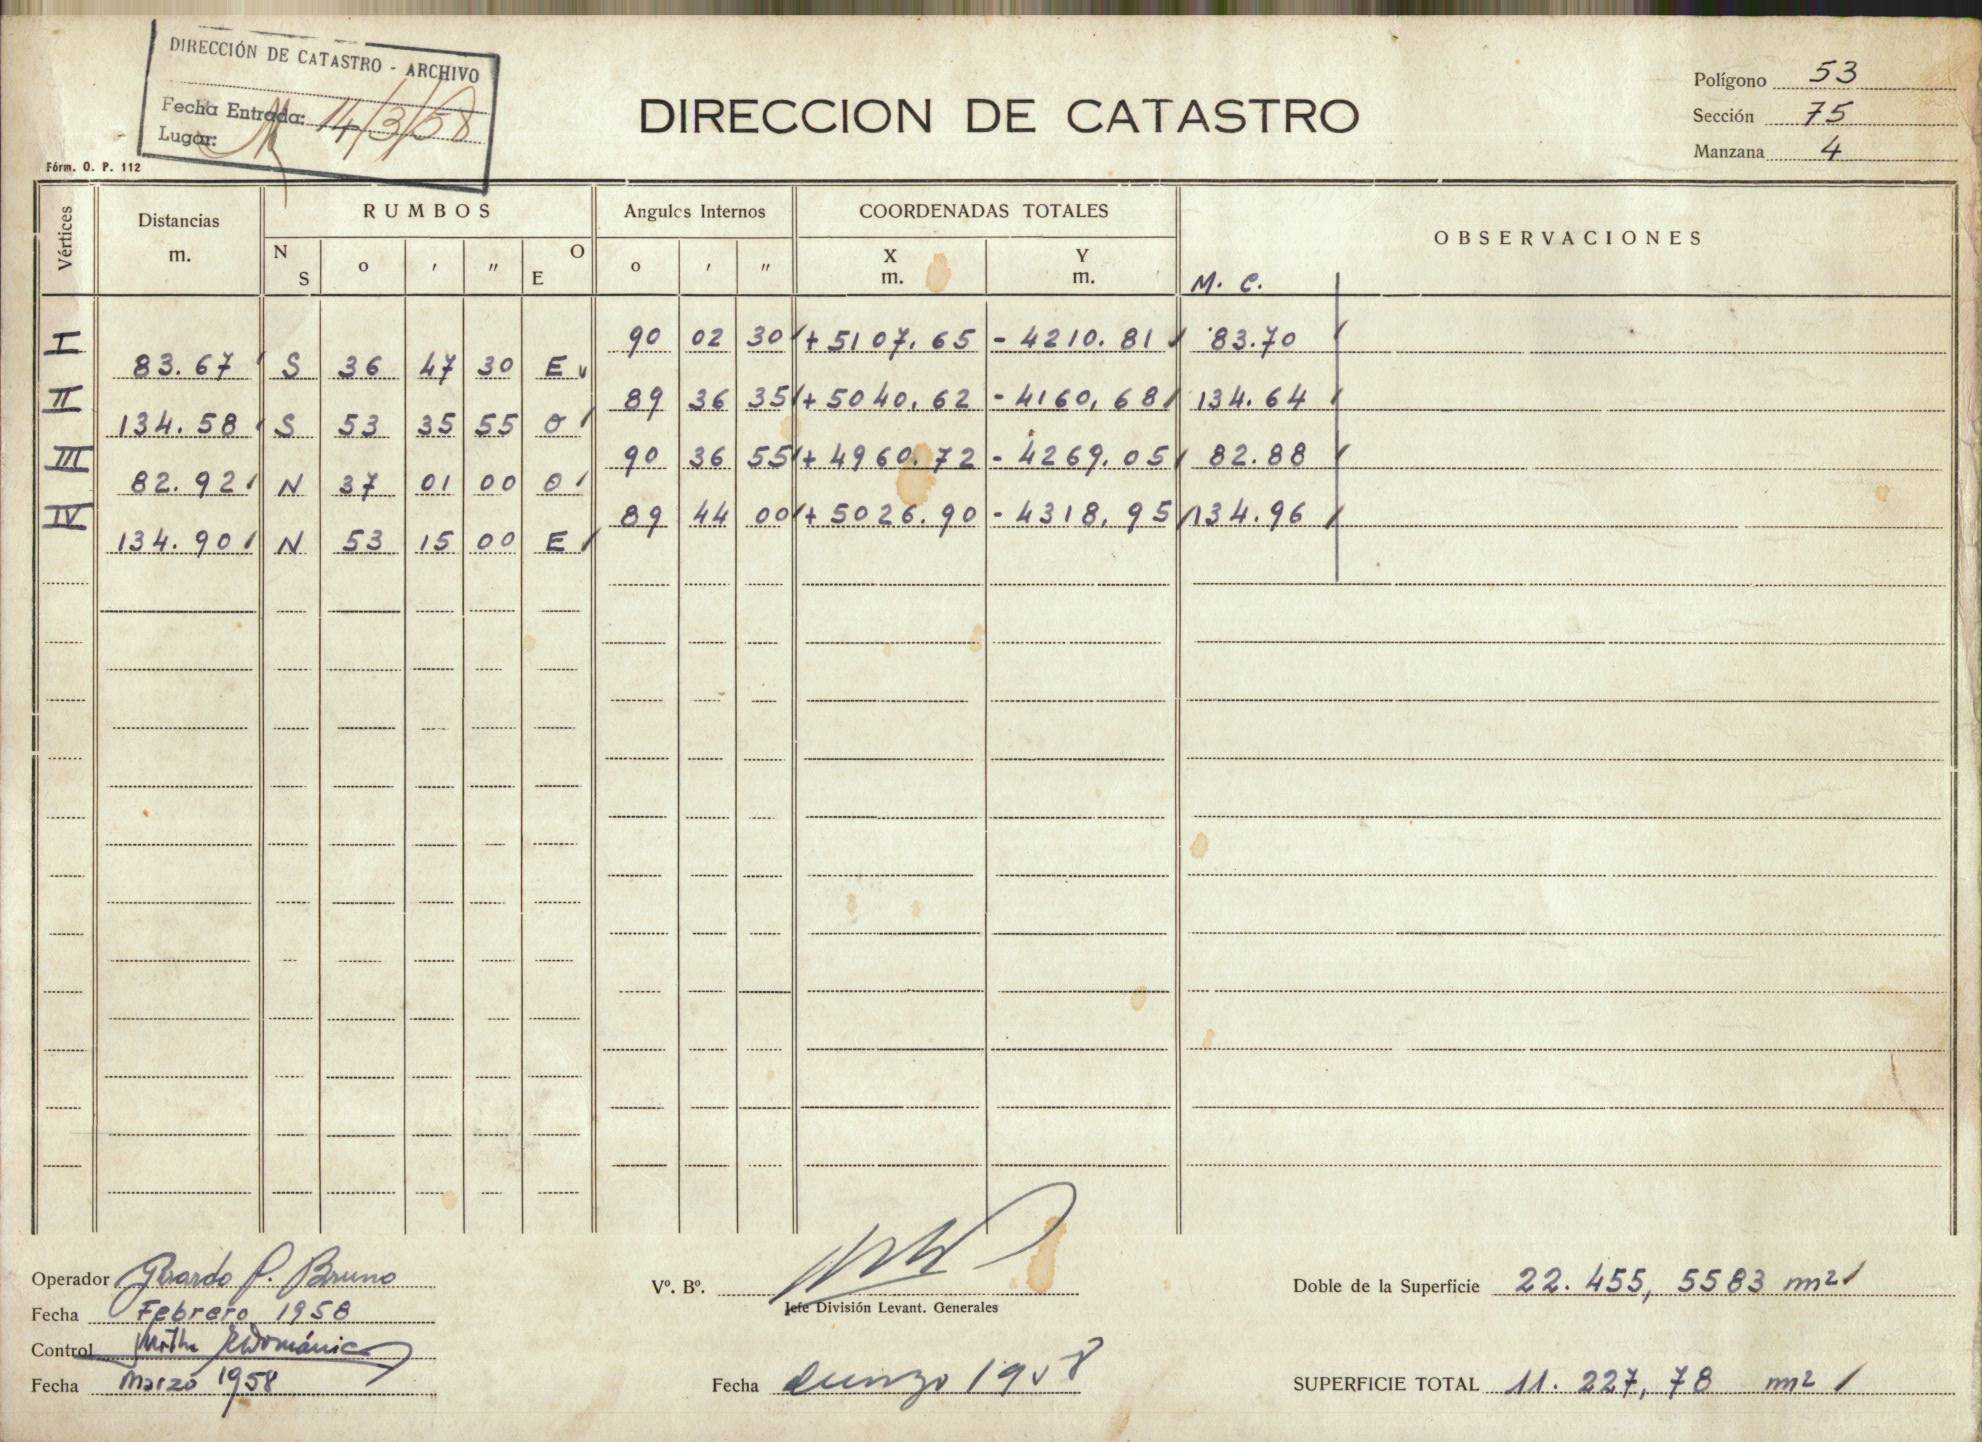 DIRECCIÓN DE CATASTRO - ARCHIVO
Fecha Entrada: 14/3/58
Lugar:
Fórm. O. P. 112
DIRECCION DE CATASTRO
Polígono 53
Sección 75
Manzana 4
Vértices Distancias m. RUMBOS Angulos Internos COORDENADAS TOTALES OBSERVACIONES
N S o ' " O E o ' " X m. Y m. M. C.
I 90 02 30 + 5107.65 - 4210.81 83.70
83.67 S 36 47 30 E
II 89 36 35 + 5040,62 - 4160,68 134.64
134.58 S 53 35 55 O
III 90 36 55 + 4960.72 - 4269.05 82.88
82.92 N 37 01 00 O
IV 89 44 00 + 5026.90 - 4318,95 134.96
134.90 N 53 15 00 E
Operador Gerardo P. Bruno
Fecha Febrero 1958
Control
Fecha Marzo 1958
Vº. Bº.
Jefe División Levant. Generales
Fecha 1958
Doble de la Superficie 22.455,5583 m2
SUPERFICIE TOTAL 11.227,78 m2